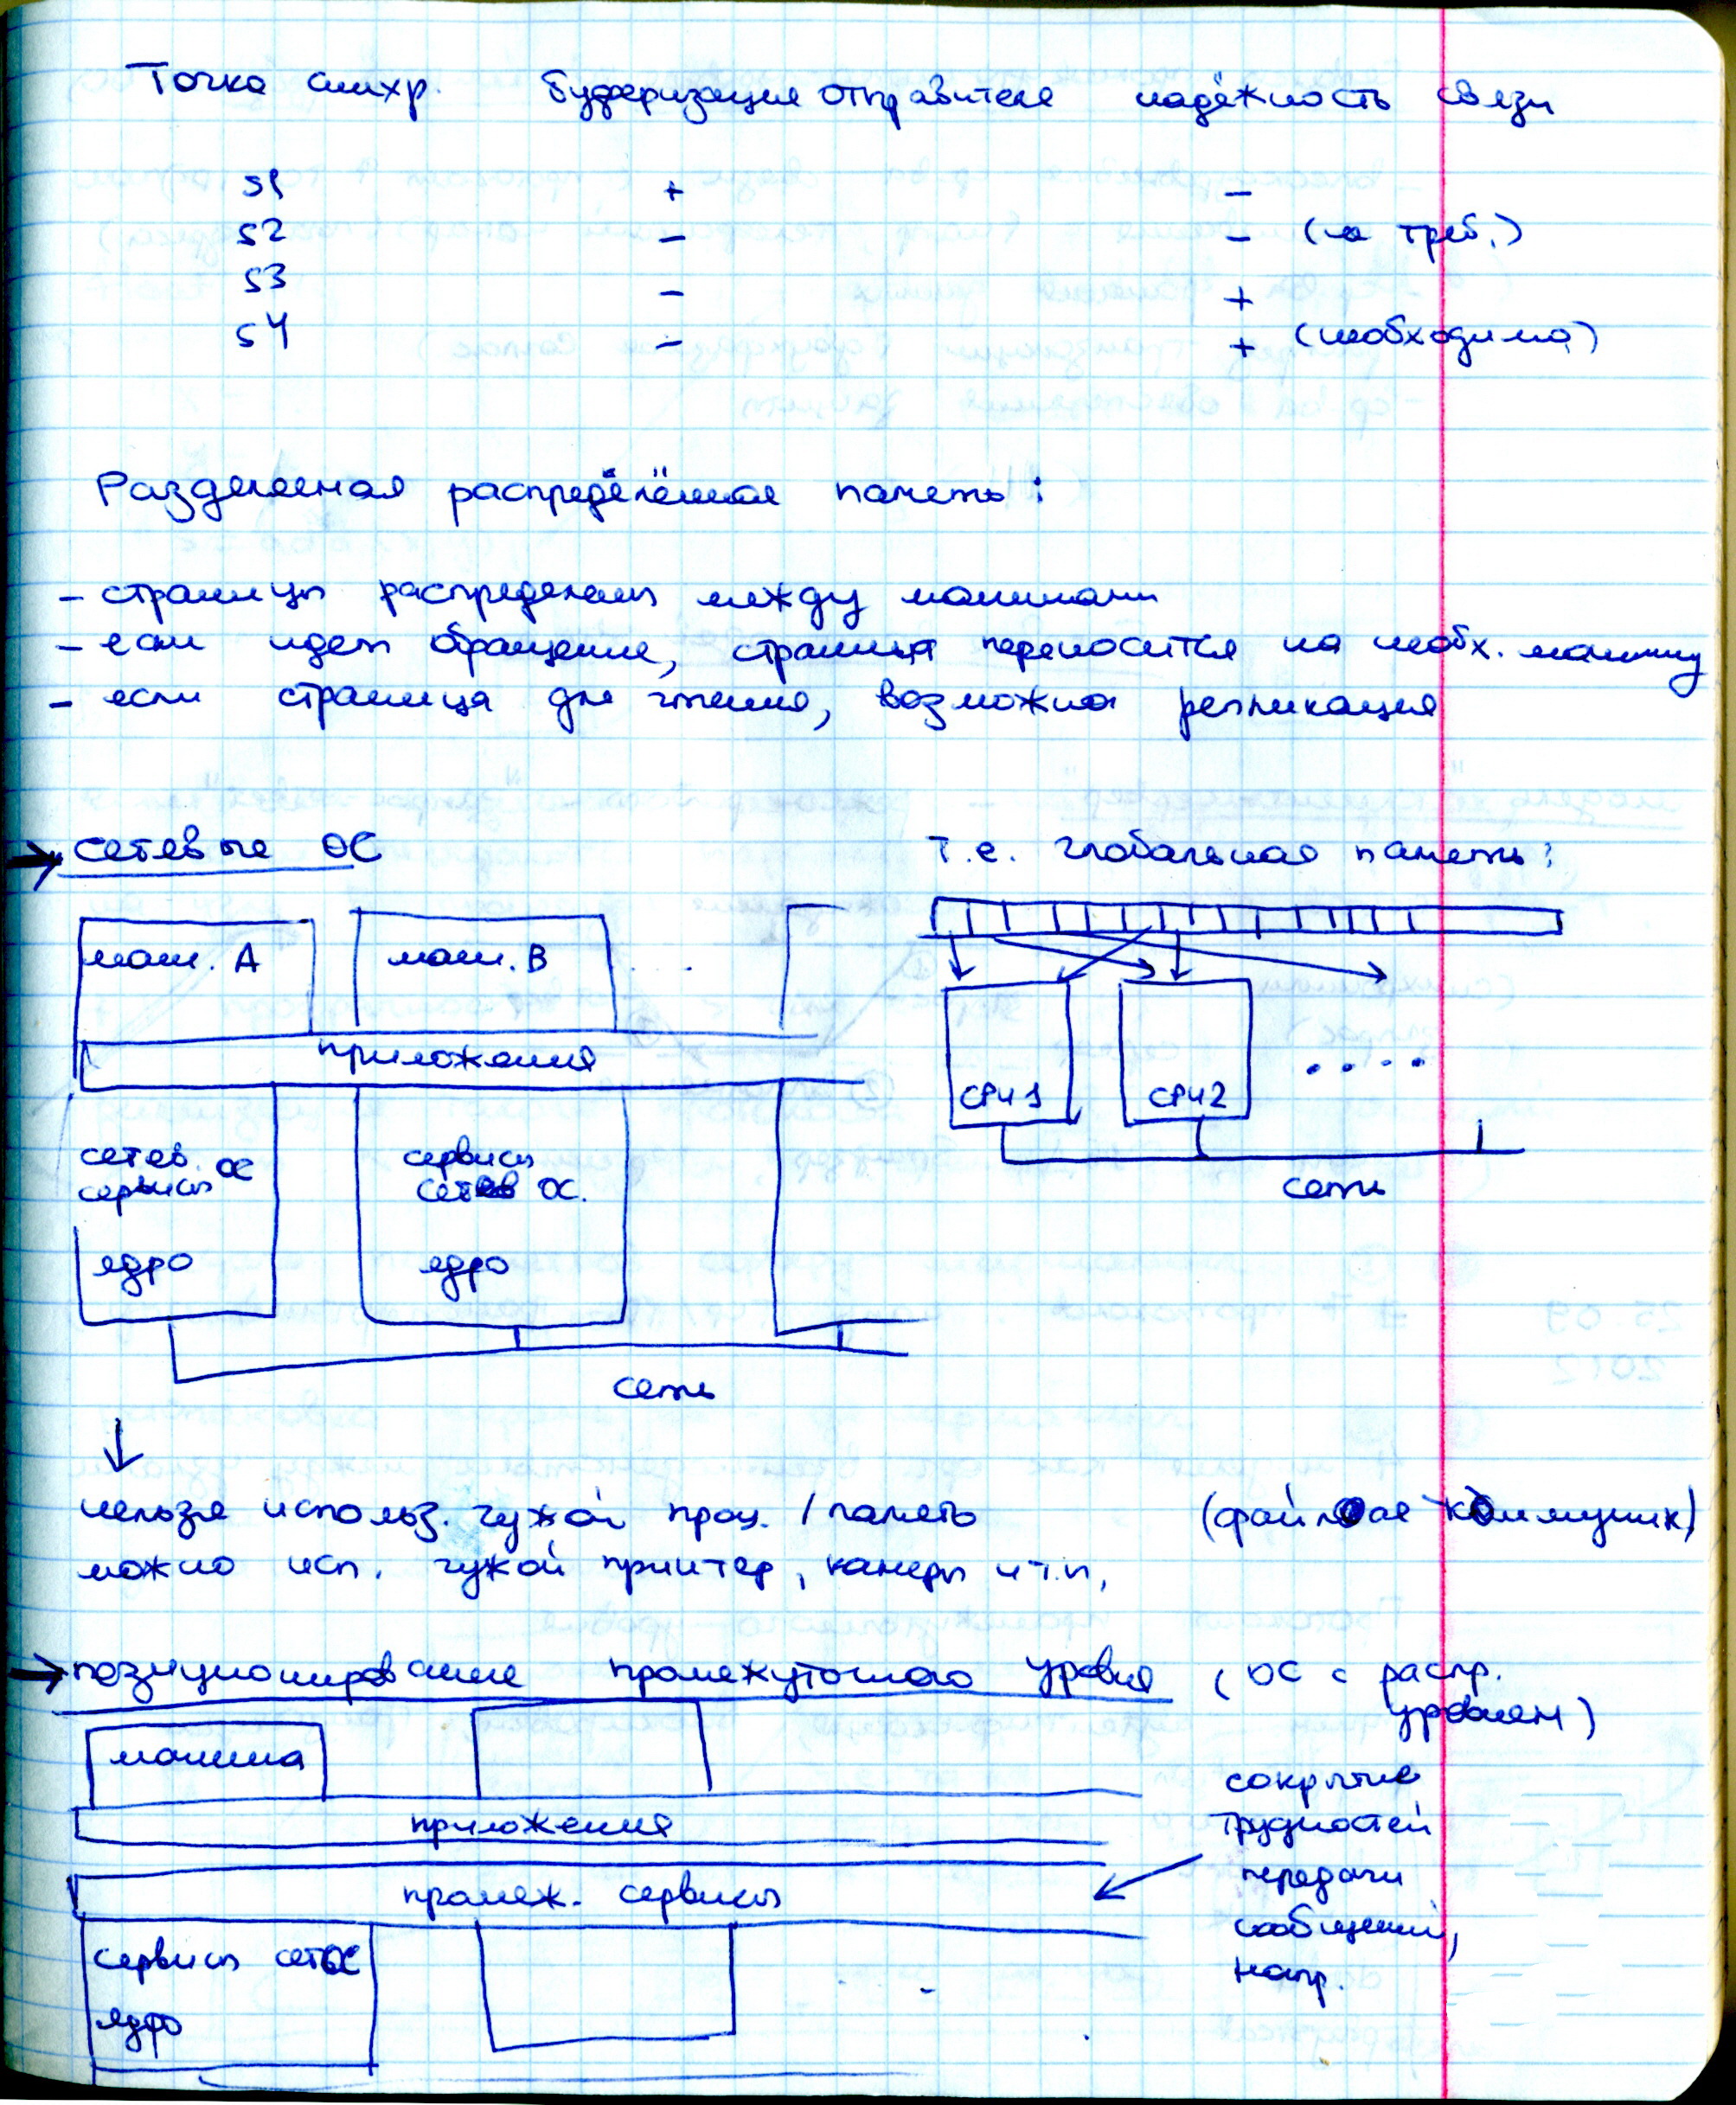 Точка синхр. буферизация отправителя надёжность связи
S1 + -
S2 - - (не треб.)
S3 - +
S4 - + (необходима)
Разделяемая распределённая память:
- страницы распределены между машинами
- если идет обращение, страница переносится на необх. машину
- если страница для чтения, возможна репликация
→ сетевые ОС
т.е. глобальная память:
маш. А маш. В ...
приложения
CPU1 CPU2 ....
сеть
сетев. ОС
сервисы
сервисы
сетев ОС.
ядро ядро
сеть
нельзя использ. чужой проц. / память (файловая коммуник)
можно исп. чужой принтер, камеры и т.п.
→ позиционирование промежуточного уровня (ОС с распр.
уровнем)
машина
приложения
сокрытие
трудностей
передачи
сообщений,
напр.
промеж. сервисы
сервисы сет ОС
ядро